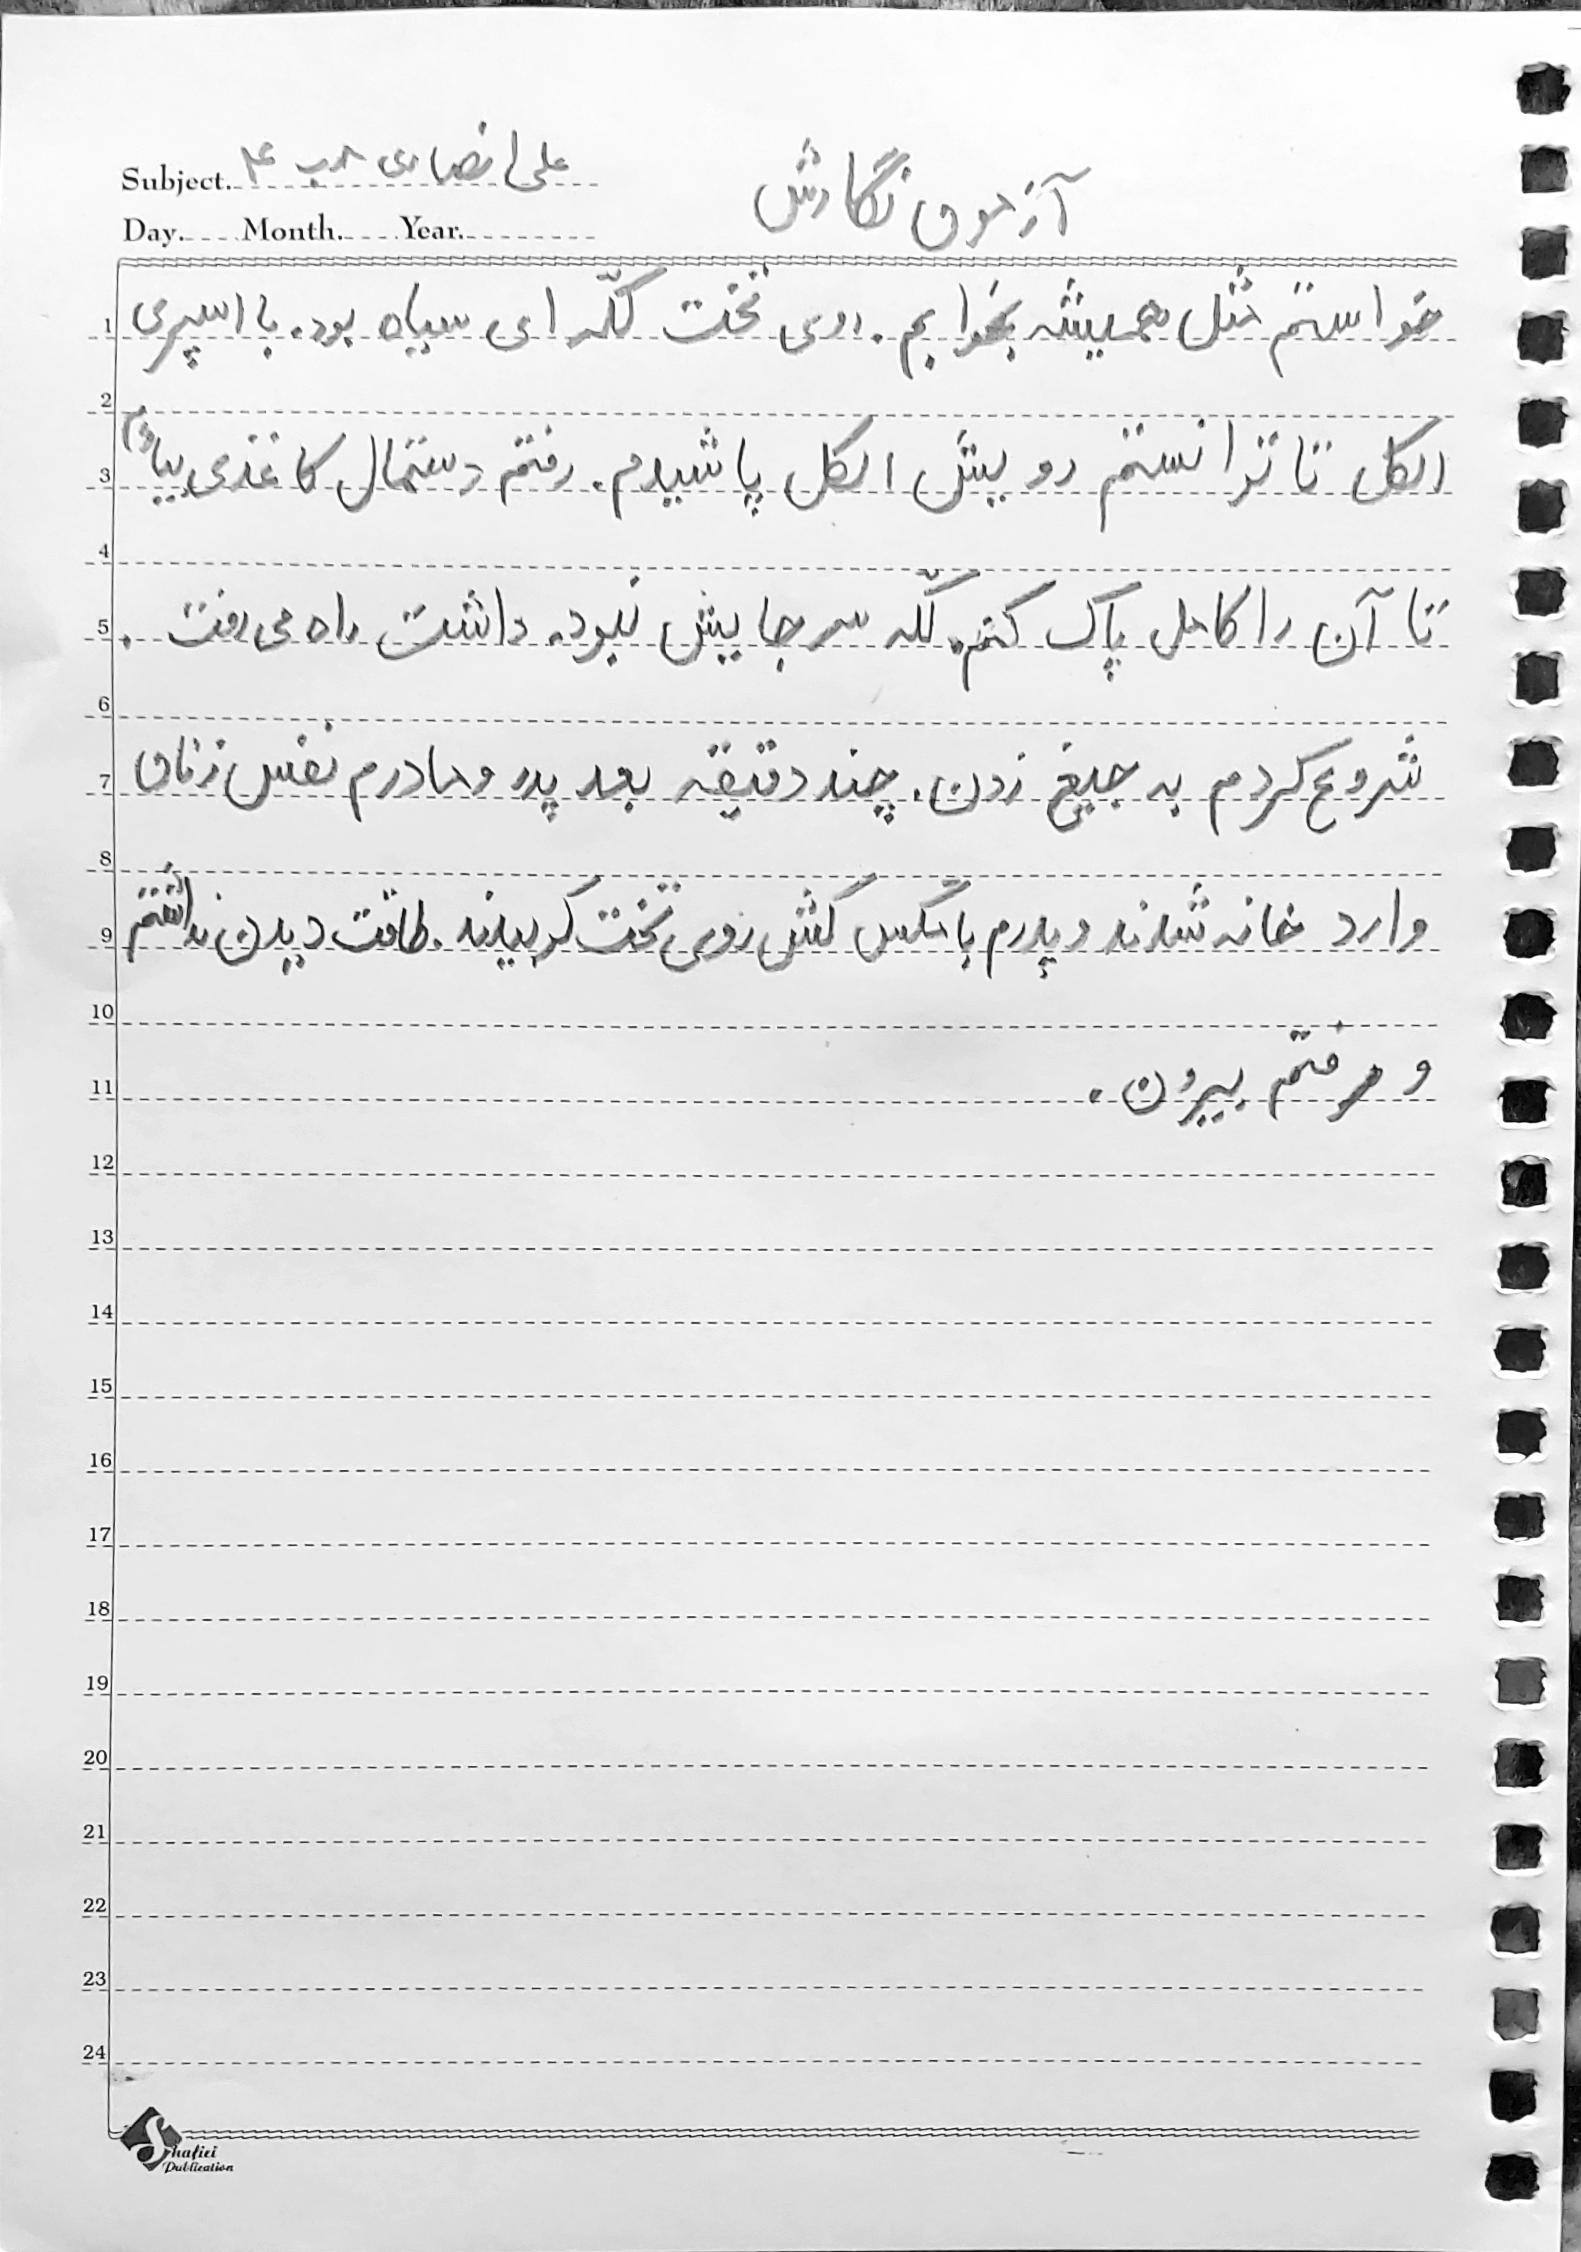 Subject. علی انصاری ۸ب ۴
آزمون نگارش
Day. Month. Year.
1 خواستم مثل همیشه بخوابم. روی تخت لکّه ای سیاه بود. با اسپری
2
3 الکل تا توانستم رویش الکل پاشیدم. رفتم دستمال کاغذی بیاورم
4
5 تا آن را کامل پاک کنم. لکّه سر جایش نبود. داشت راه می رفت.
6
7 شروع کردم به جیغ زدن. چند دقیقه بعد پدر و مادرم نفس زنان
8
9 وارد خانه شدند و پدرم با مگس کش روی تخت کوبیدند. طاقت دیدن نداشتم
10
11 و رفتم بیرون.
12
13
14
15
16
17
18
19
20
21
22
23
24
Shafiei
Publication